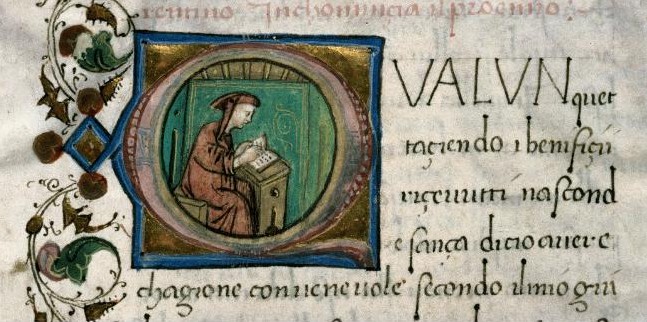 rentino Inchomincia ilproemio:
QVALVNquet
taçiendo i benifiçii
riçevutti nascond
e sança dicio avere
chagione convenevole secondo ilmio giu